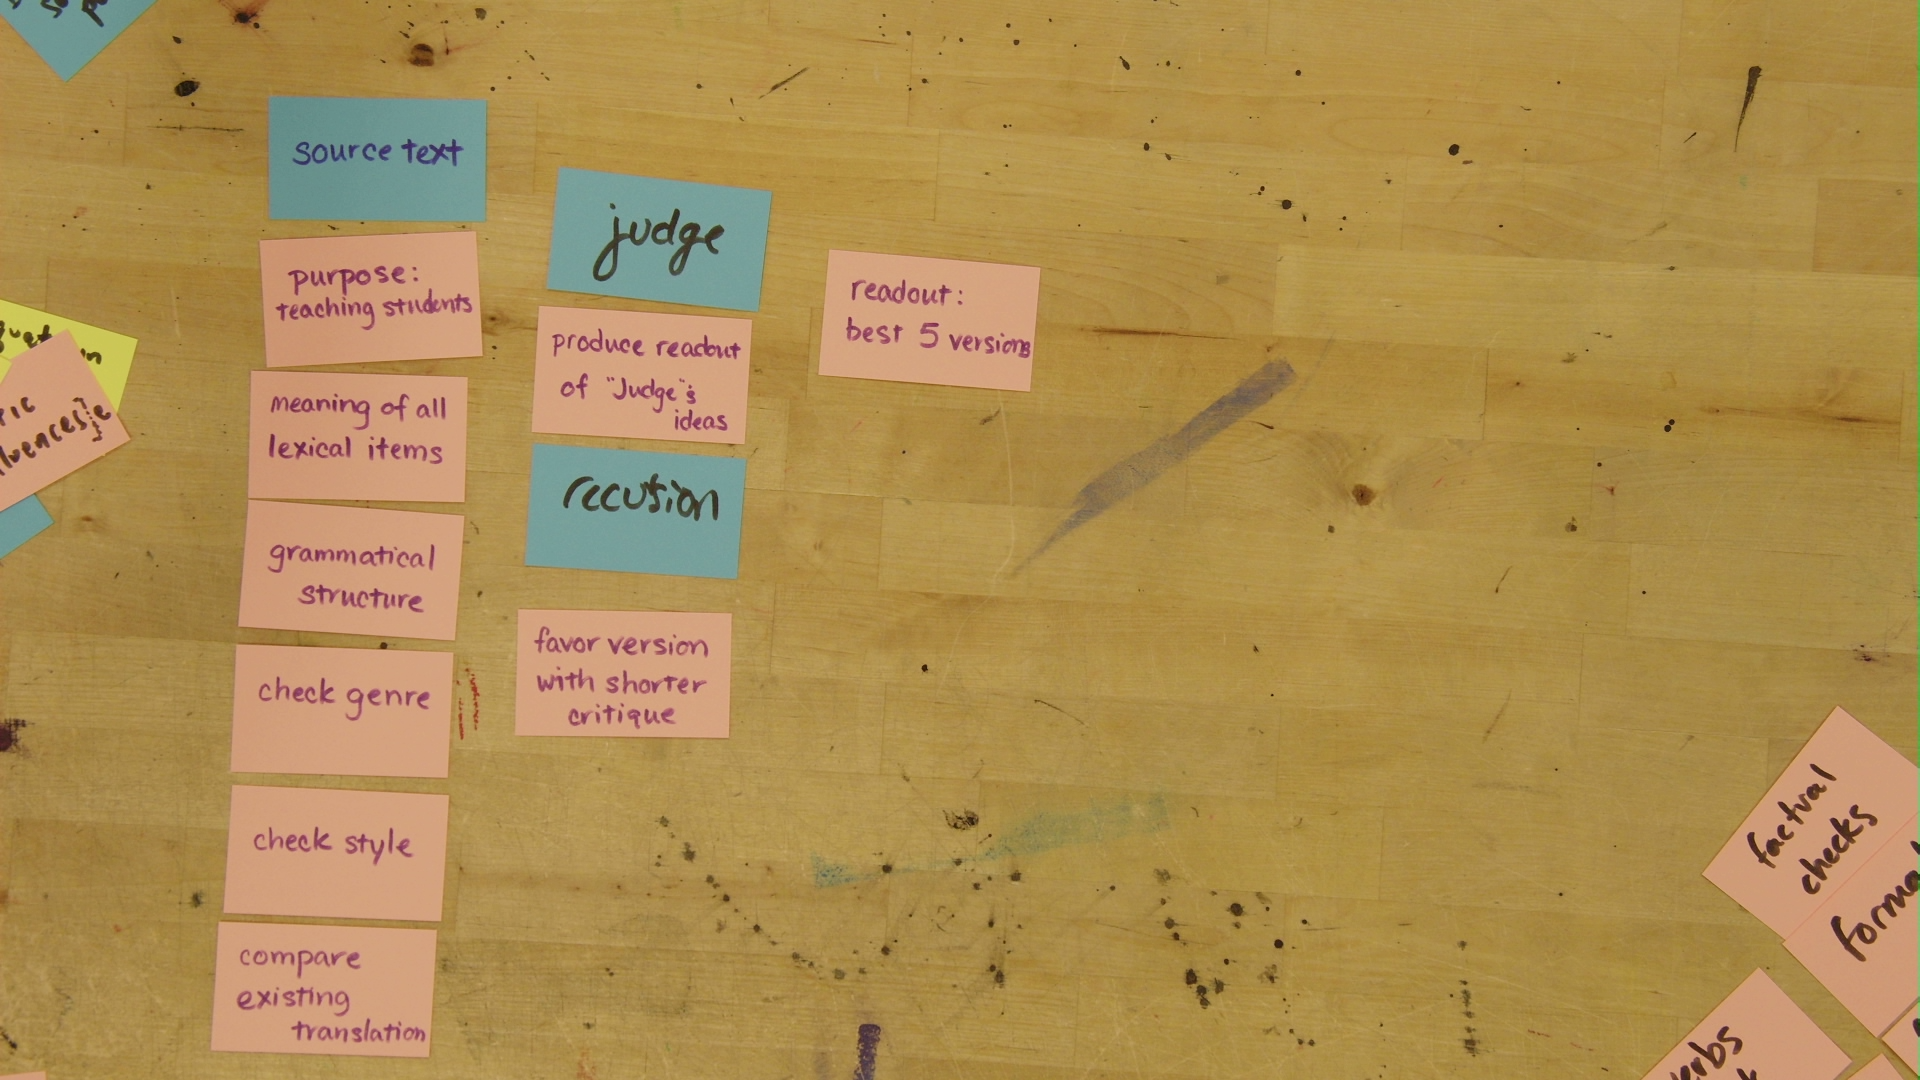 source text
purpose:
teaching students
meaning of all
lexical items
grammatical
structure
check genre
check style
compare
existing
translation
judge
produce readout
of "Judge"'s
ideas
recusion
favor version
with shorter
critique
readout:
best 5 versions
factual
checks